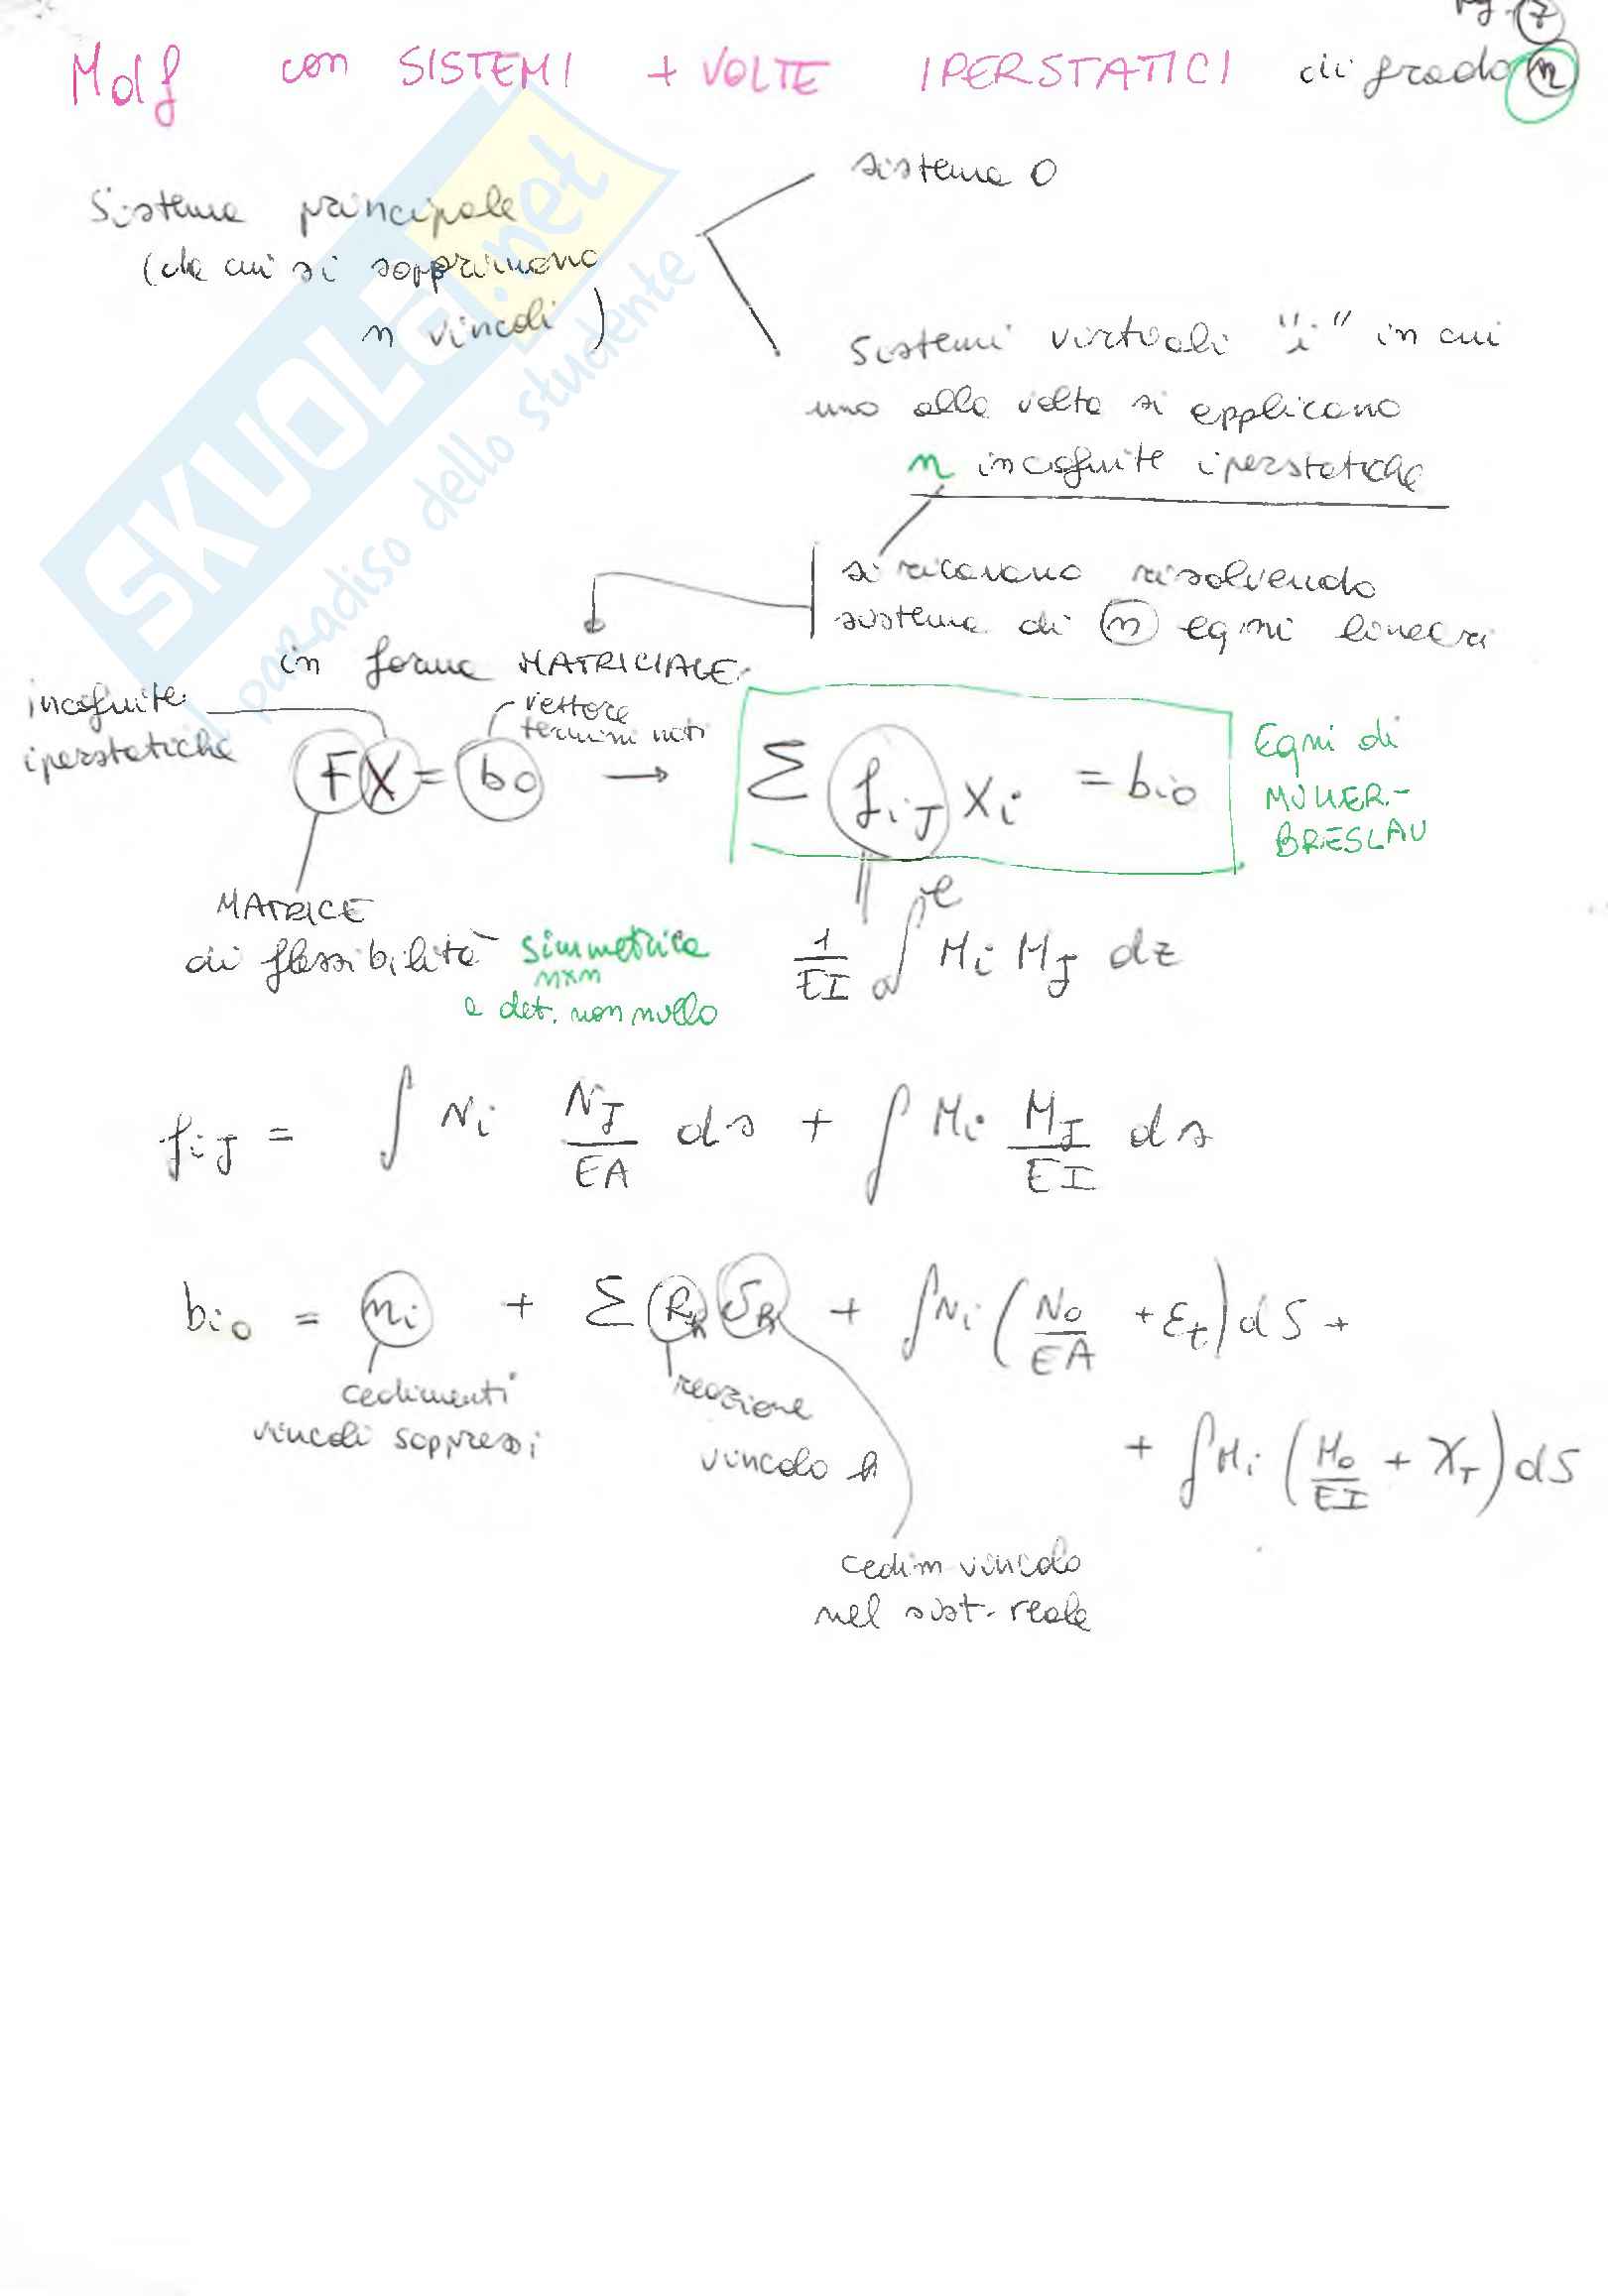 pg. 7
Mdf con SISTEMI + VOLTE IPERSTATICI di grado n
Sistema principale
(da cui si sopprimono
n vincoli)
sistema 0
Sistemi virtuali "i" in cui
uno alla volta si applicano
n incognite iperstatiche
si ricavano risolvendo
sistema di n eqni lineari
in forma MATRICIALE:
incognite
iperstatiche
vettore
termini noti
F X = b0 → Σ fiJ Xi = bio
Eqni di
MULLER-
BRESLAU
MATRICE
di flessibilità simmetrica
nxn
e det. non nullo
1/EI ∫0^l Mi MJ dz
fiJ = ∫ Ni NJ/EA ds + ∫ Mi MJ/EI ds
bio = ni + Σ Rh δh + ∫Ni (No/EA + εt) dS +
+ ∫Mi (Mo/EI + χT) dS
cedimenti
vincoli soppressi
reazione
vincolo h
cedim vincolo
nel sist. reale
SKUOLA.net
il paradiso dello studente